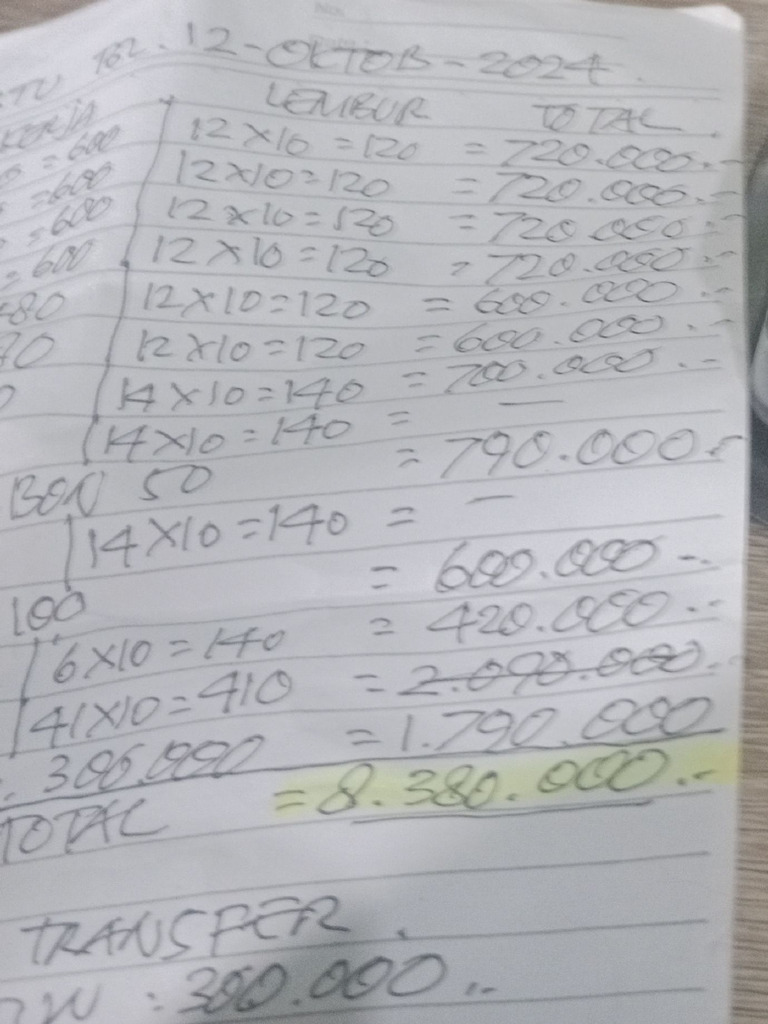 TGL. 12-OKTOB-2024.
KERJA LEMBUR TOTAL.
=600 12×10=120 =720.000.-
=600 12×10=120 =720.000.-
=600 12×10=120 =720.000.-
=600 12×10=120 =720.000.-
=80 12×10=120 =600.000.-
70 12×10=120 =600.000.-
0 14×10=140 =700.000.-
14×10=140 = —
BON 50 =790.000.-
14×10=140 = —
100 =600.000.-
6×10=140 =420.000.-
41×10=410 =2.090.000.-
300.000 =1.790.000
TOTAL =8.380.000.-
TRANSFER.
: 300.000..